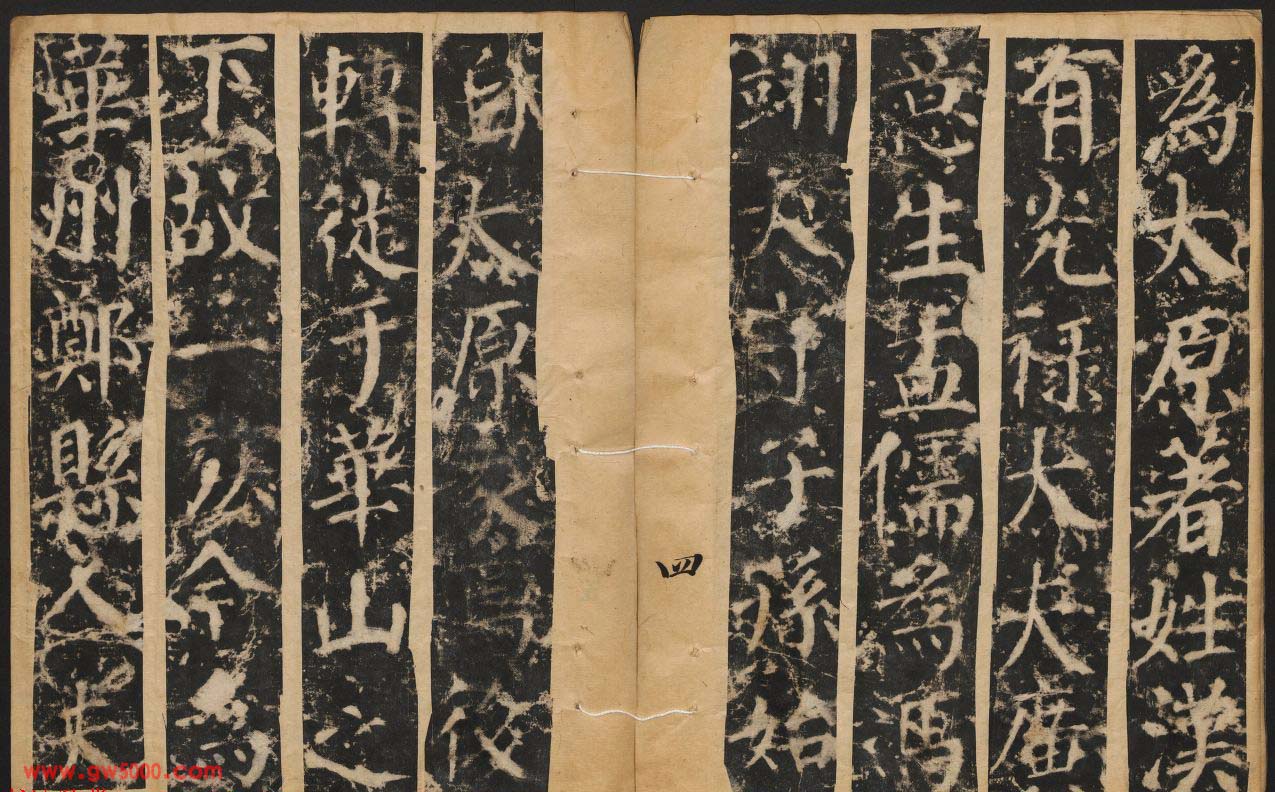 為太原著姓漢
有光祿大夫廣
意生孟儒為馮
翊太守子孫始
四
自太原家焉後
轉徙于華山之
下故一今為
華州鄭縣人
www.gw5000.com